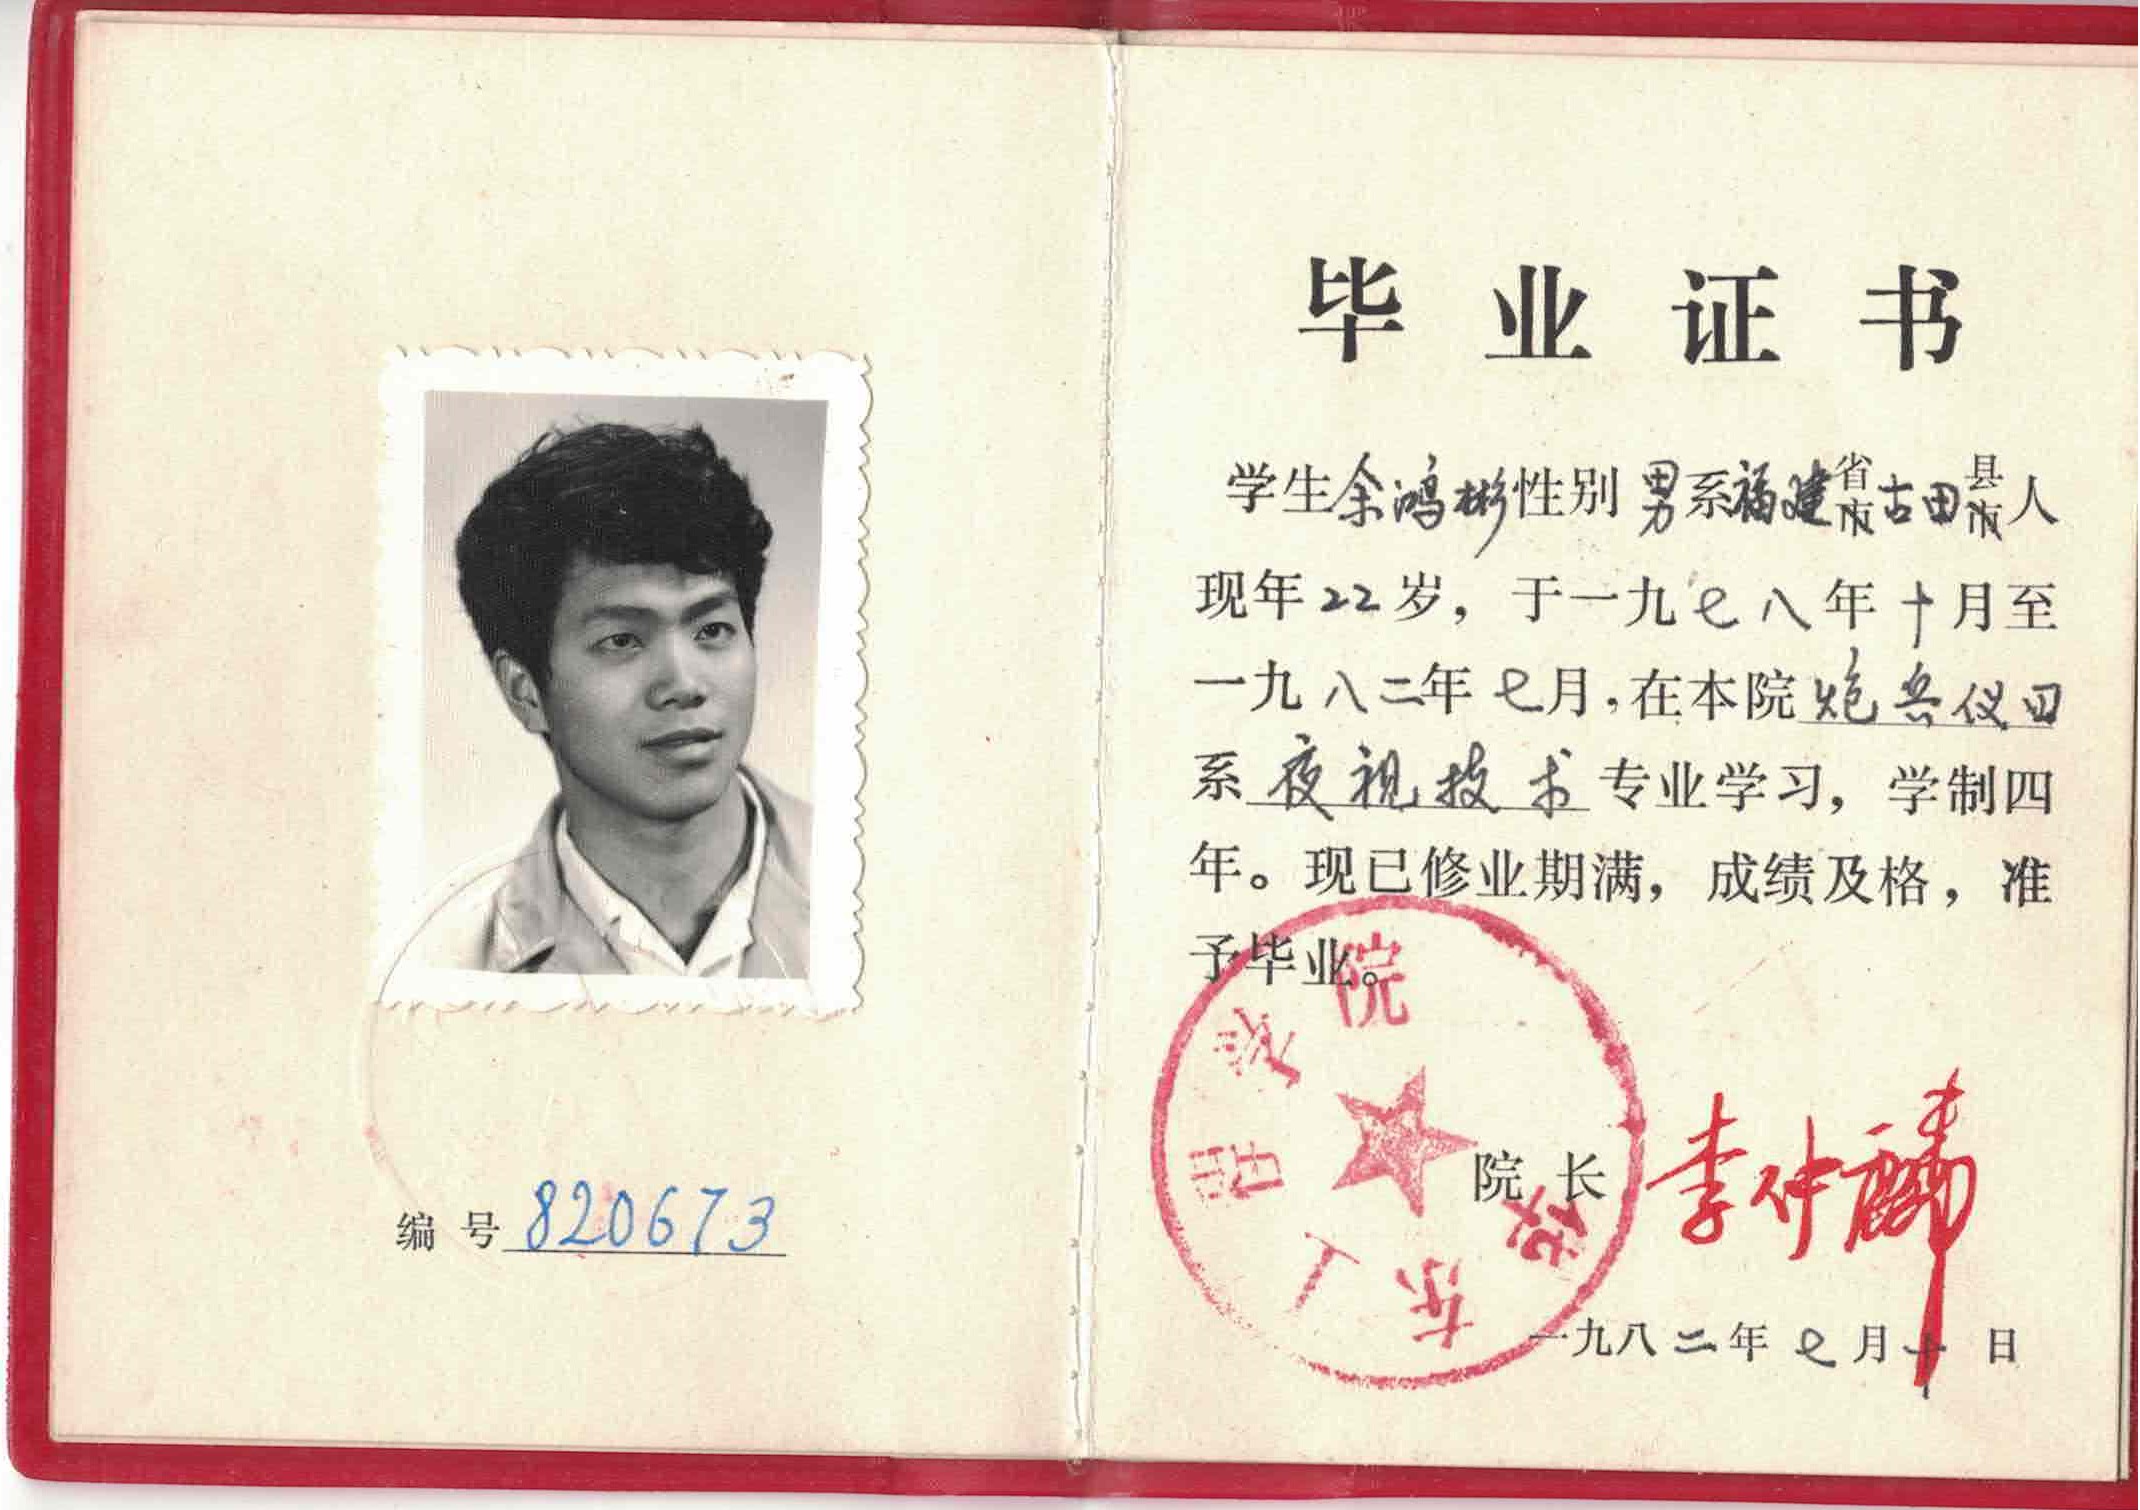 编号 820673
毕业证书
学生余鸿彬性别男系福建省市古田县市人
现年22岁，于一九七八年十月至
一九八二年七月，在本院炮兵仪四
系夜视技术专业学习，学制四
年。现已修业期满，成绩及格，准
予毕业。
华东工程学院
院长 李仲麟
一九八二年七月十日